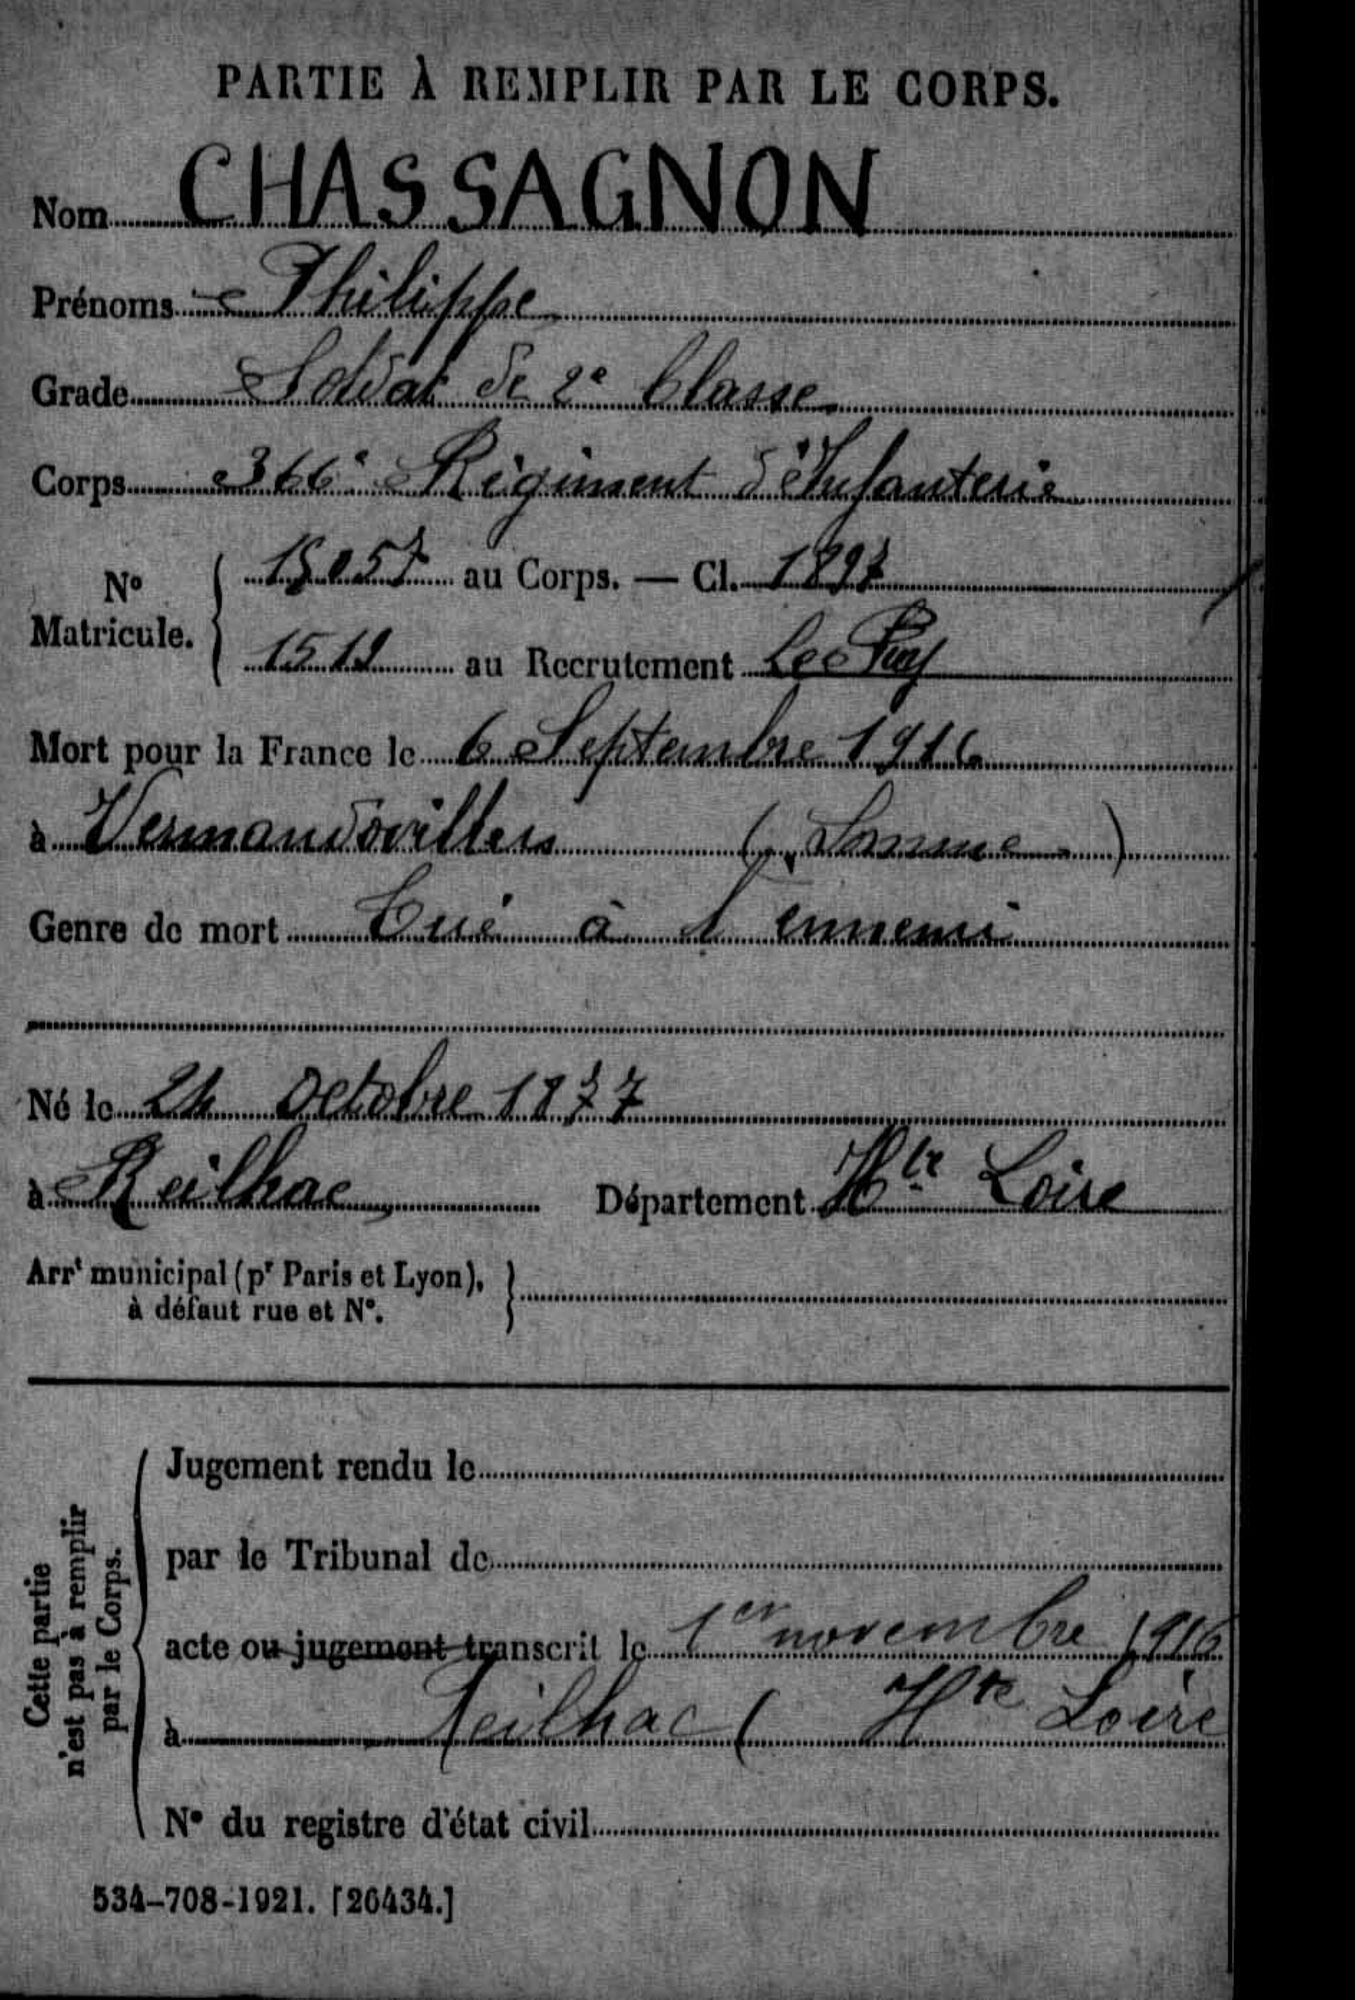 PARTIE À REMPLIR PAR LE CORPS.
Nom CHASSAGNON
Prénoms Philippe
Grade Soldat de 2e Classe
Corps 366e Régiment d'Infanterie
No Matricule. 15057 au Corps. — Cl. 1897
1519 au Recrutement Le Puy
Mort pour la France le 6 Septembre 1916
à Vermandovillers (Somme)
Genre de mort Tué à l'ennemi
Né le 24 Octobre 1877
à Reilhac Département Hte Loire
Arrt municipal (pr Paris et Lyon),
à défaut rue et No.
Cette partie
n'est pas à remplir
par le Corps.
Jugement rendu le
par le Tribunal de
acte ou jugement transcrit le 1er novembre 1916
à Reilhac ( Hte Loire
No du registre d'état civil
534-708-1921. [26434.]